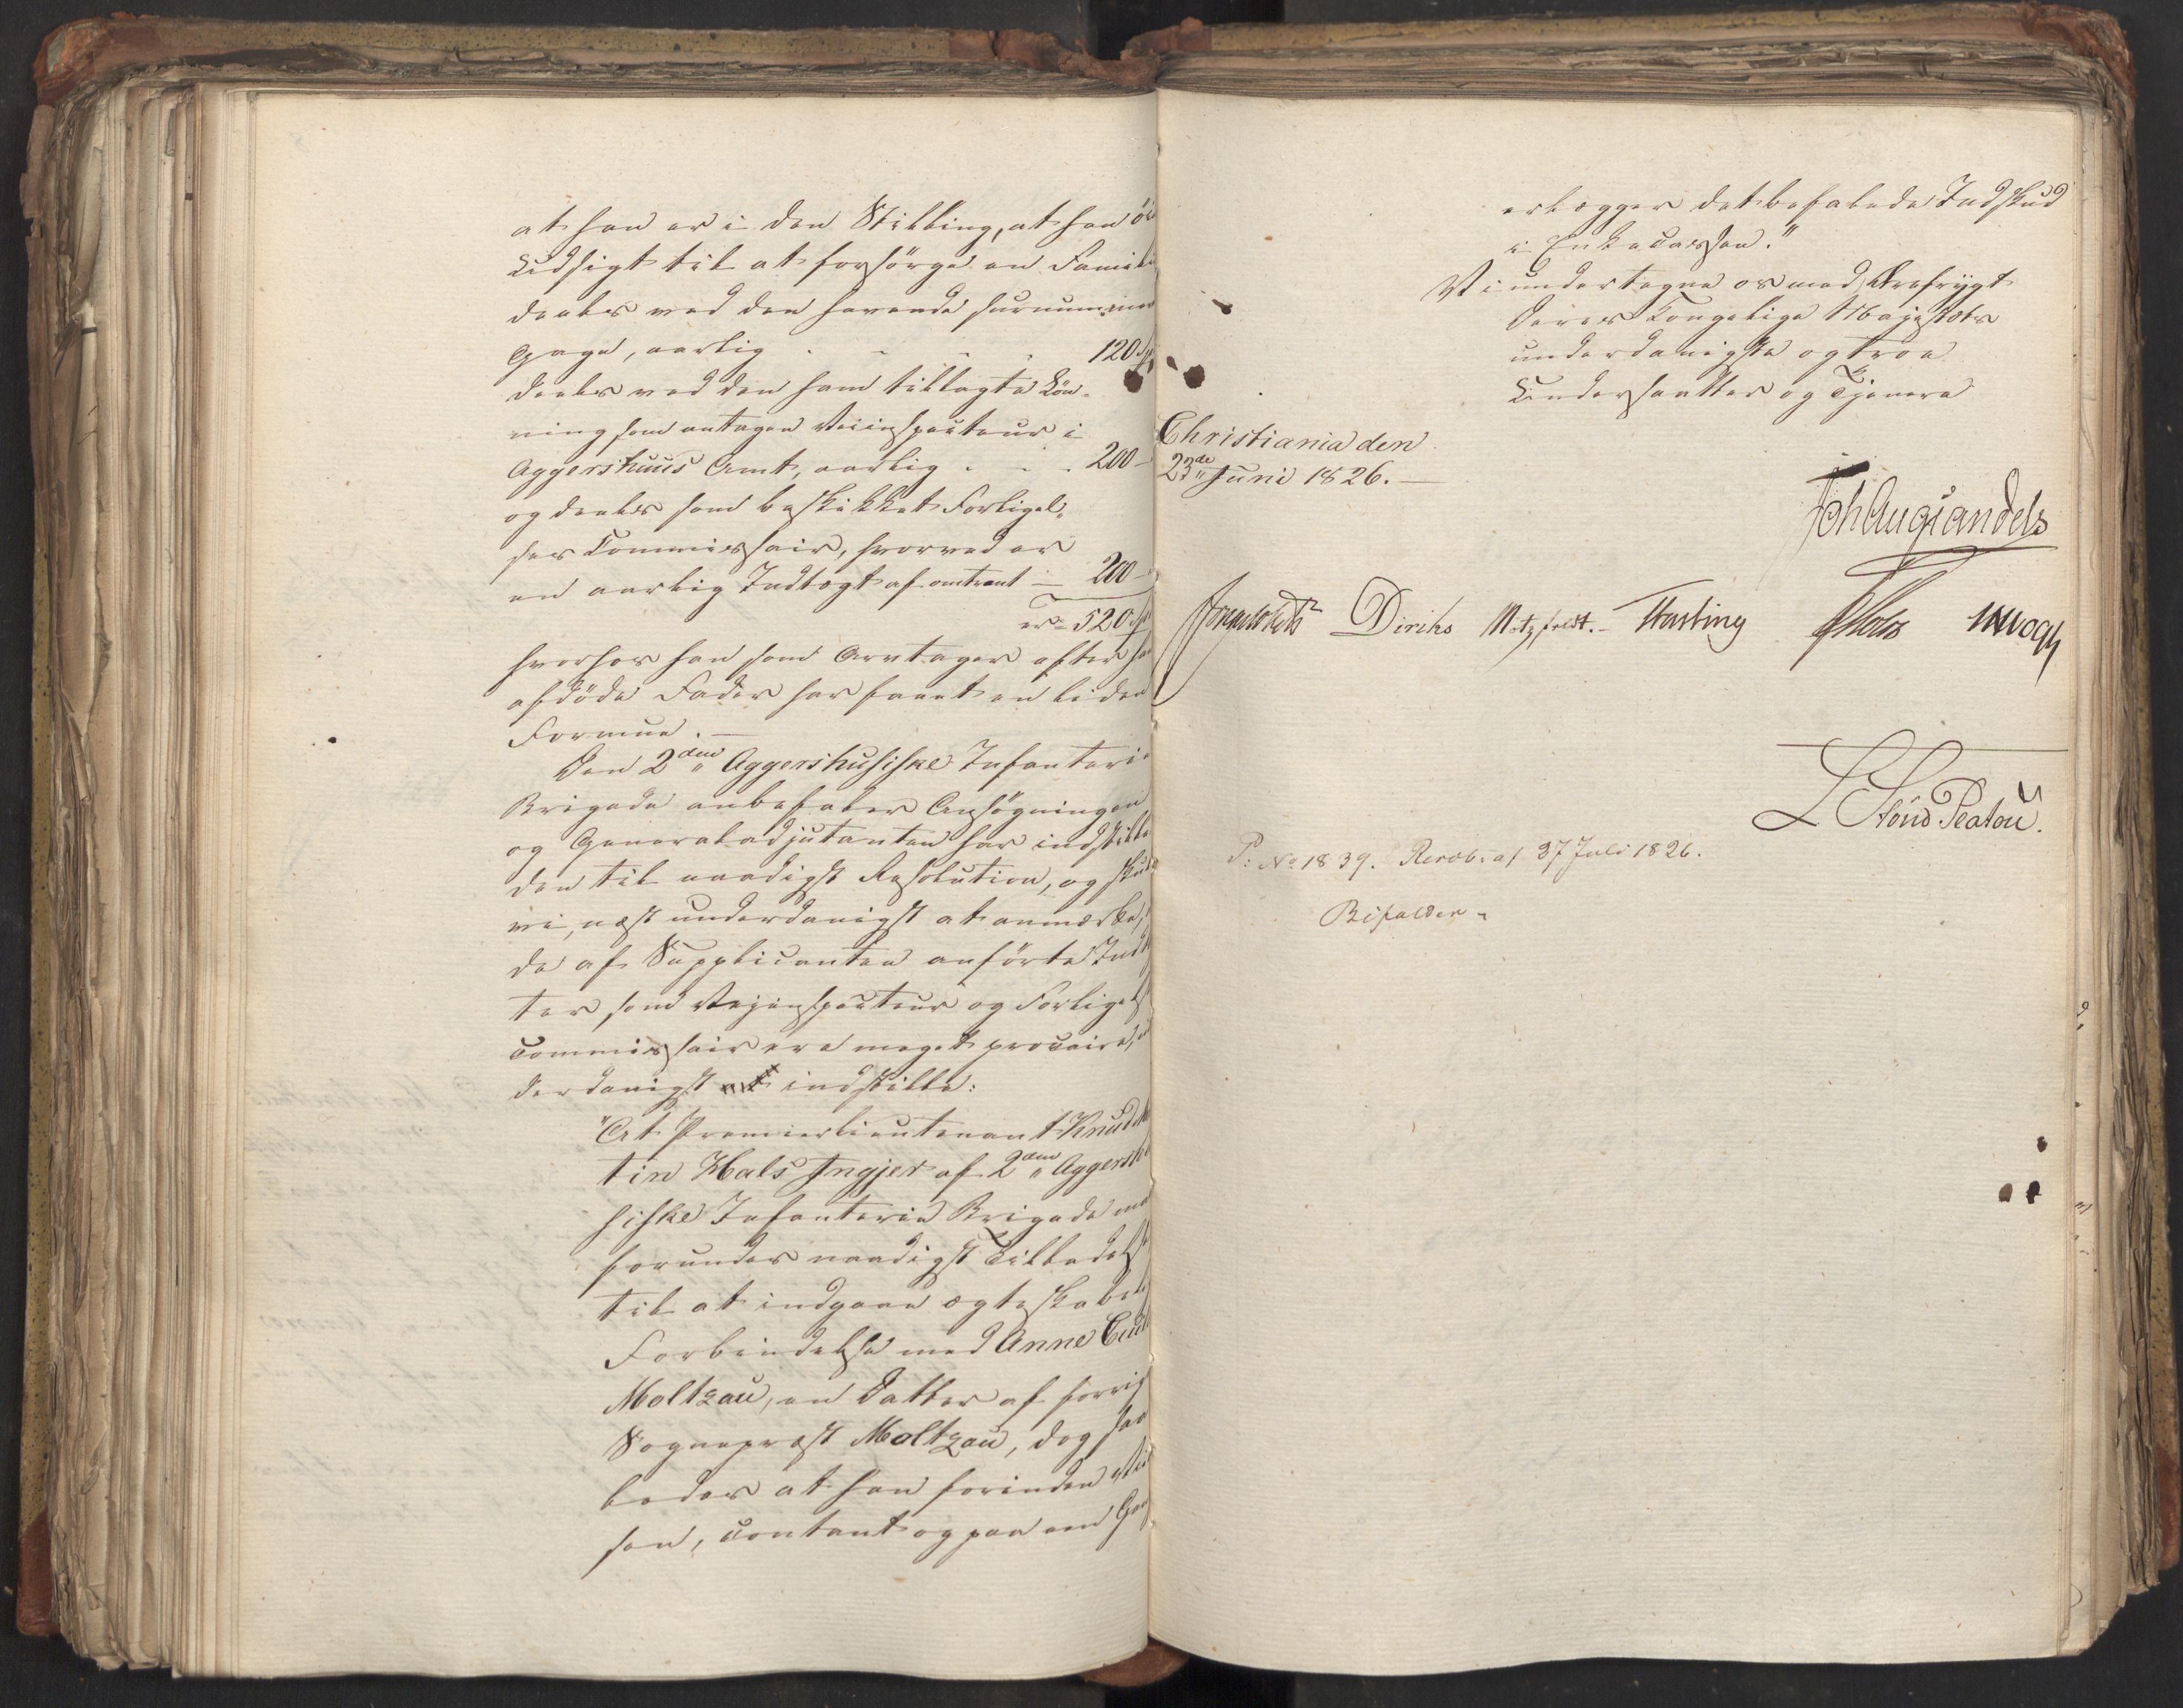 at han er i den Stilling, at han
Udsigt til at forsørge en Famili
deels ved den havende surnummer
Gage, aarlig . . . . 120 Sp
deels ved den ham tillagte Løn-
ning som antagen Veiinspecteur i
Aggershuus Amt, aarlig . . . 200 -
og deels som beskikket Forligel-
ses Commissair, hvorved er
en aarlig Indtægt af omtrent - 200 -
er 520 Sp
hvorhos han som Arvtager efter
afdöde Fader har faaet en liden
Formue. -
Den 2den Aggershusiske Infanteri
Brigade anbefaler Ansögningen
og Generaladjutanten har indstillet
den til naadigst Resolution, og skulle
vi, næst underdanigst at anmærke,
de af Supplicanten anförte Indt
ter som Vejinspecteur og Forligels
Commissair ere meget precaire,
derdanigst indstille:
"At Premierlieutenant Knud
tin Hals Ingjer af 2den Aggershu
siske Infanterie Brigade maa
forundes naadigst Tilladelse
til at indgaae ægteskabel
Forbindelse med Anne
Moltzau, en Datter af forrig
Sogneprest Moltzau, dog saa
ledes at han forinden Vi
sen, contant og paa een Gang
erlægger det befalede Indskud
i Enkecassen."
Vi undertegne os med Ærefrygt
Deres Kongelige Majestæts
underdanigste og troe
Undersaatter og Tjenere
Christiania den
23de Juni 1826. -
Joh Aug Sandels
Diriks Motzfeldt. - Fasting
L Stoud Platou.
P: No 1839. Resol: af 27 Juli 1826.
Bifaldes -